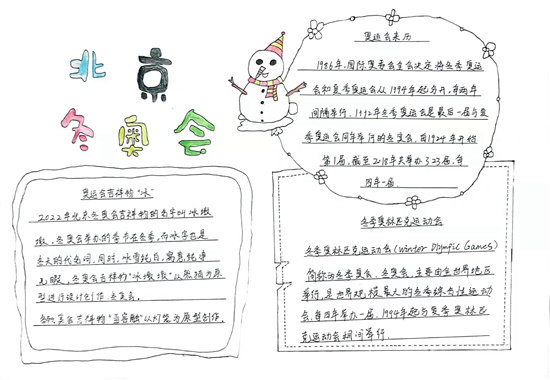 北京
冬奥会
奥运会来历
1986年,国际奥委会全会决定将冬季奥运
会和夏季奥运会从1994年起分开,每两年
间隔举行,1992年冬季奥运会是最后一届与夏
季奥运会同年举行的冬奥会,自1924年开始
第1届,截至2018年共举办了23届,每
四年一届.
奥运会吉祥物“冰”
2022年北京冬奥会吉祥物的名字叫冰墩
墩,冬奥会举办的季节在冬季,而冰字也是
冬天的代名词,同时,冰雪纯洁,寓意纯净
无暇,冬奥会吉祥物“冰墩墩”以熊猫为原
型进行设计创作,
冬残奥会吉祥物“雪容融”以灯笼为原型创作.
冬季奥林匹克运动会
冬季奥林匹克运动会(Winter Olympic Games)
简称为冬季奥会,冬奥会,主要由全世界地区
举行,是世界规模最大的冬季综合性运动
会,每四年举办一届,1994年起与夏季奥林匹
克运动会相间举行.